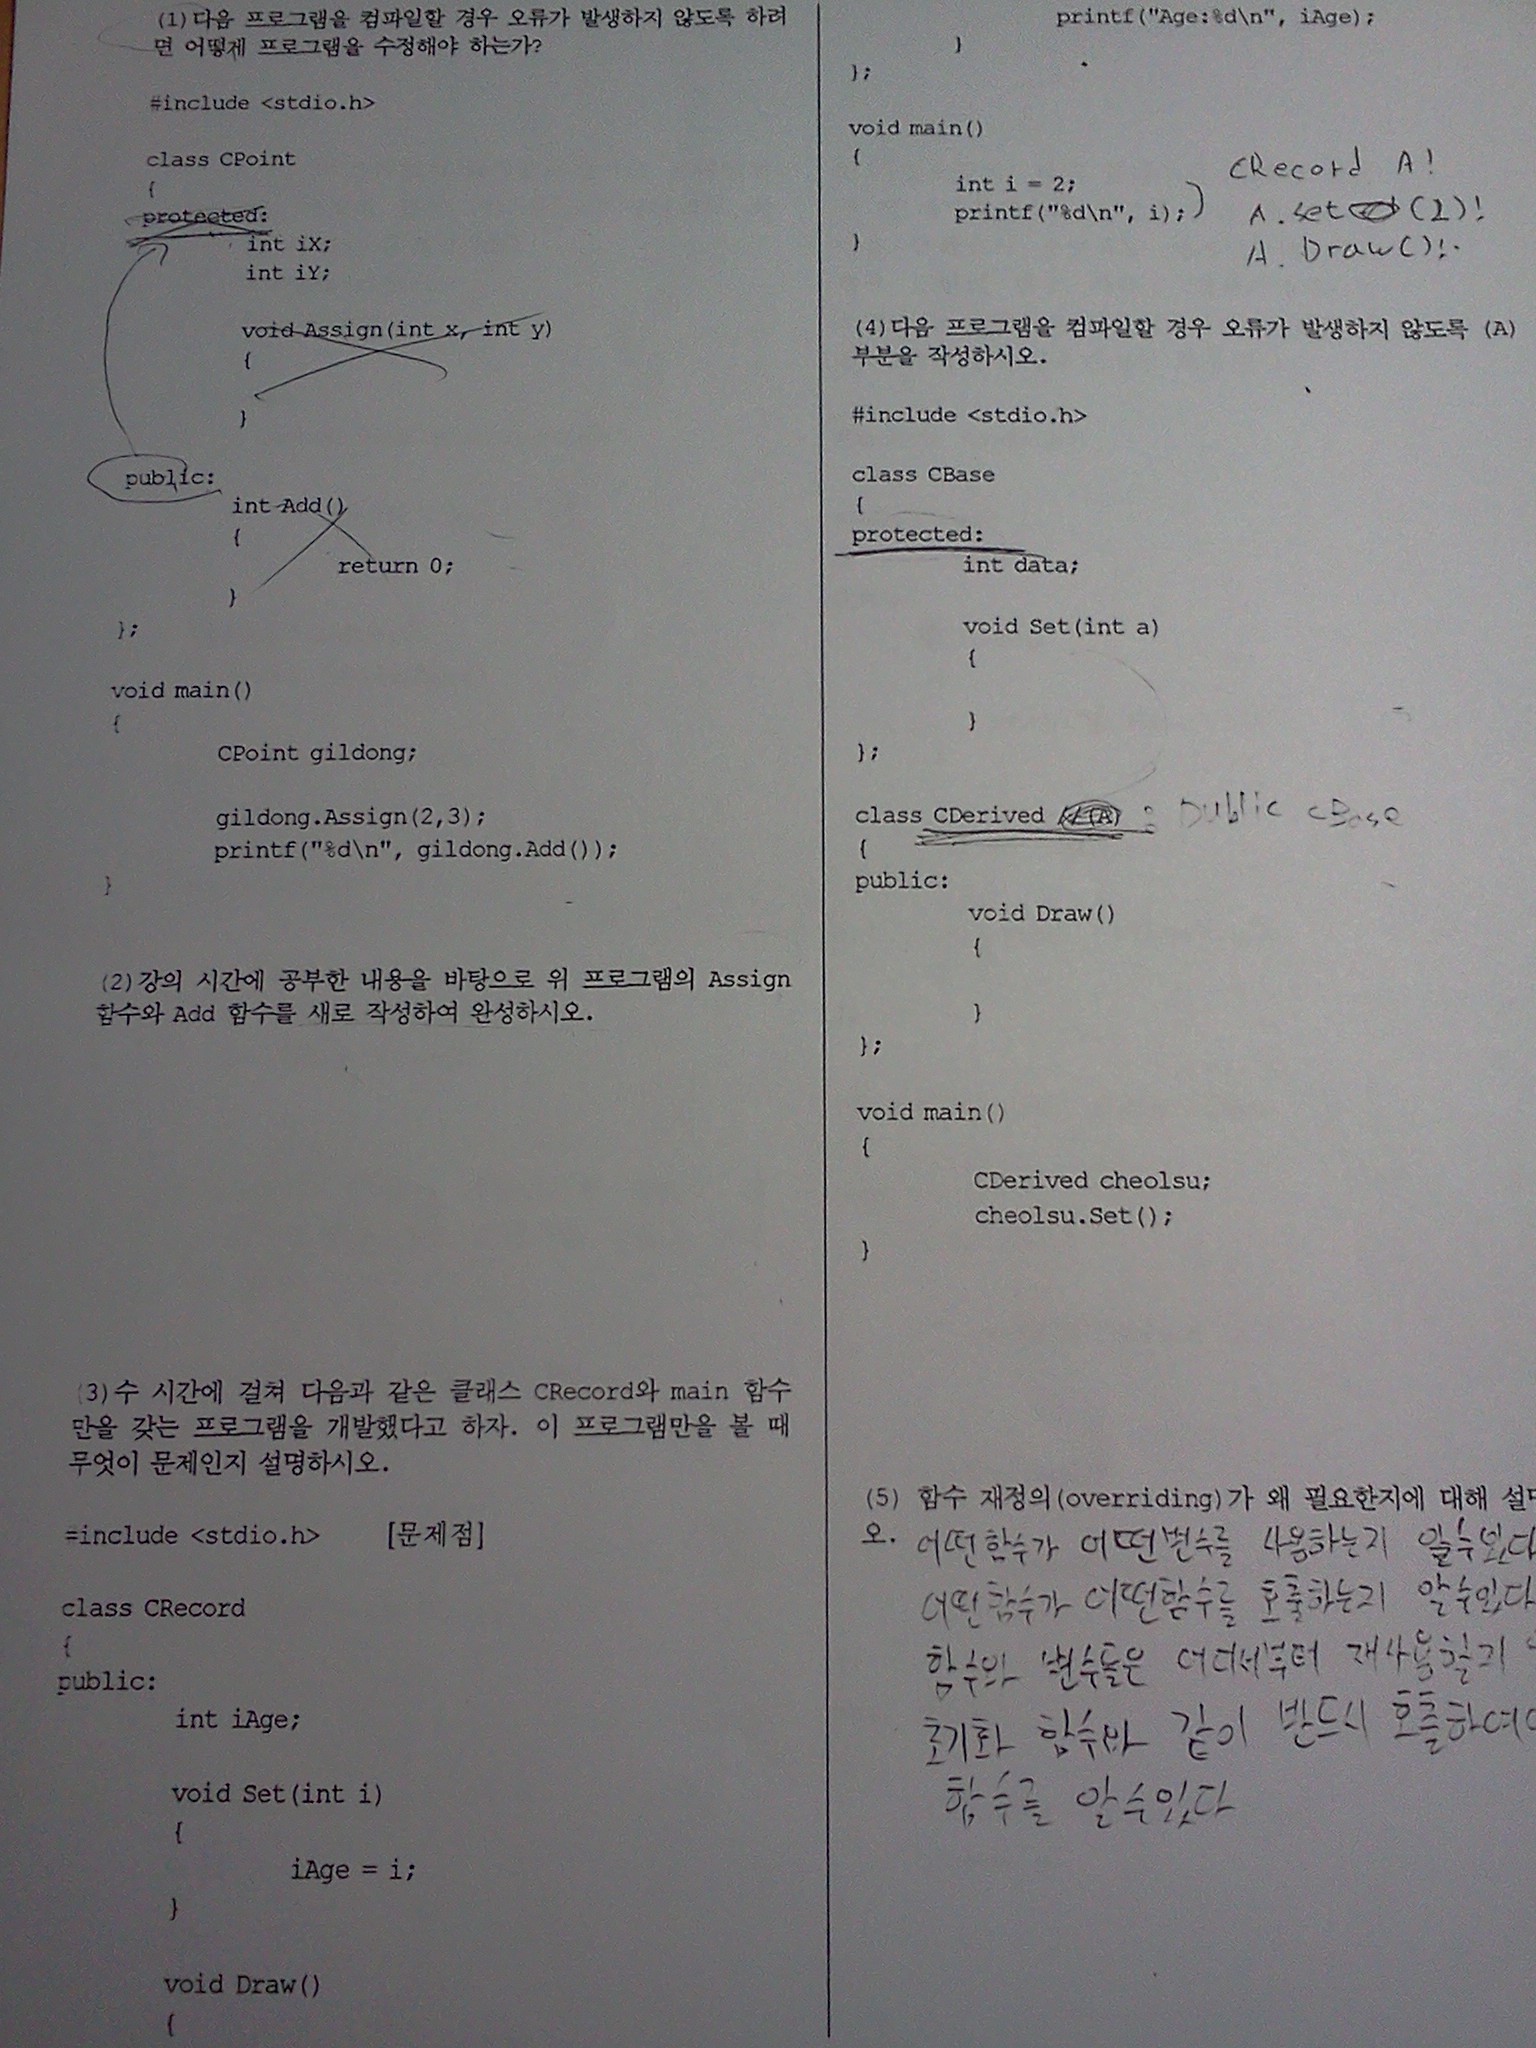 (1)다음 프로그램을 컴파일할 경우 오류가 발생하지 않도록 하려
면 어떻게 프로그램을 수정해야 하는가?
#include <stdio.h>
class CPoint
{
protected:
int iX;
int iY;
void Assign(int x, int y)
{
}
public:
int Add()
{
return 0;
}
};
void main()
{
CPoint gildong;
gildong.Assign(2,3);
printf("%d\n", gildong.Add());
}
(2)강의 시간에 공부한 내용을 바탕으로 위 프로그램의 Assign
함수와 Add 함수를 새로 작성하여 완성하시오.
(3)수 시간에 걸쳐 다음과 같은 클래스 CRecord와 main 함수
만을 갖는 프로그램을 개발했다고 하자. 이 프로그램만을 볼 때
무엇이 문제인지 설명하시오.
#include <stdio.h> [문제점]
class CRecord
{
public:
int iAge;
void Set(int i)
{
iAge = i;
}
void Draw()
{
printf("Age:%d\n", iAge);
}
};
void main()
{
int i = 2;
printf("%d\n", i);
}
CRecord A!
A.set (2)!
A. Draw()!
(4)다음 프로그램을 컴파일할 경우 오류가 발생하지 않도록 (A)
부분을 작성하시오.
#include <stdio.h>
class CBase
{
protected:
int data;
void Set(int a)
{
}
};
class CDerived //(A) : public CBase
{
public:
void Draw()
{
}
};
void main()
{
CDerived cheolsu;
cheolsu.Set();
}
(5) 함수 재정의(overriding)가 왜 필요한지에 대해 설
오. 어떤함수가 어떤변수를 사용하는지 알수있다
어떤함수가 어떤함수를 호출하는지 알수있다
함수와 변수들은 어디서부터 재사용할지
초기화 함수와 같이 반드시 호출하여
함수를 알수있다